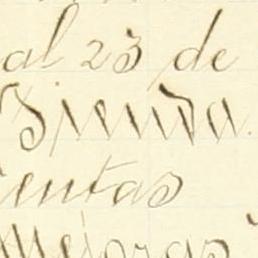 al 23 de
Tienda.
entas
mejoras